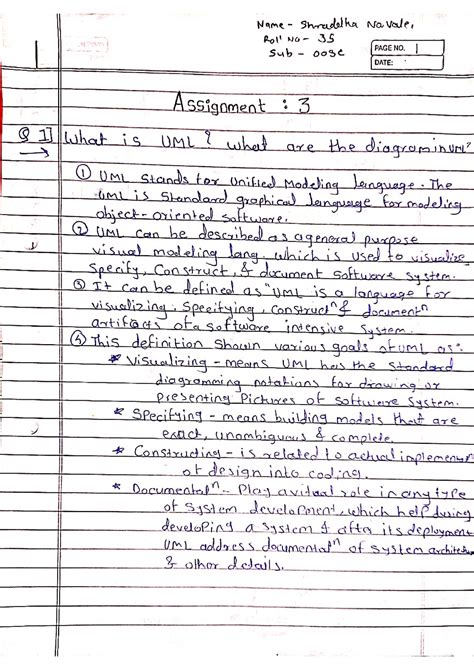 Name - Shraddha Navale,
Roll No - 35
Sub - OOSE
PAGE NO. 1
DATE:
Assignment : 3
Q 1] What is UML? What are the diagram in UML?
① UML stands for Unified Modeling Language. The
UML is Standard graphical language for modeling
object-oriented software.
② UML can be described as a general purpose
visual modeling lang, which is used to visualize,
Specify, Construct, & document Software System.
③ It can be defined as "UML is a language for
visualizing, Specifying, Constructⁿ & documentⁿ
artifacts of a software intensive System.
④ This definition shown various goals of UML as:
* Visualizing - means UML has the standard
diagramming notations for drawing or
presenting Pictures of software System.
* Specifying - means building models that are
exact, unambiguous & complete.
* Constructing - is related to actual implemen
of design into coding.
* Documentalⁿ - Play a vitual role in any type
of System development, which help during
developing a System & afta its deployment
UML address documentalⁿ of System architec
& other details.